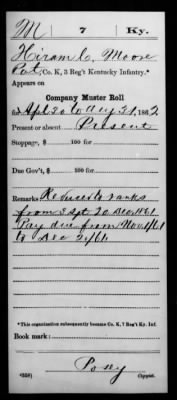 M | 7 | Ky.
Hiram C. Moore
Pvt., Co. K, 3 Reg't Kentucky Infantry.*
Appears on
Company Muster Roll
for Apl 30 to Aug 31, 1862
Present or absent Present
Stoppage, $ 100 for
Due Gov't, $ 100 for
Remarks: Reduced to ranks
from 3 Sgt 20 Dec 1861
Pay due from Nov 1/61
to Dec 2/61
*This organization subsequently became Co. K, 7 Reg't Ky. Inf.
Book mark:
Posey
(358) Copyist.